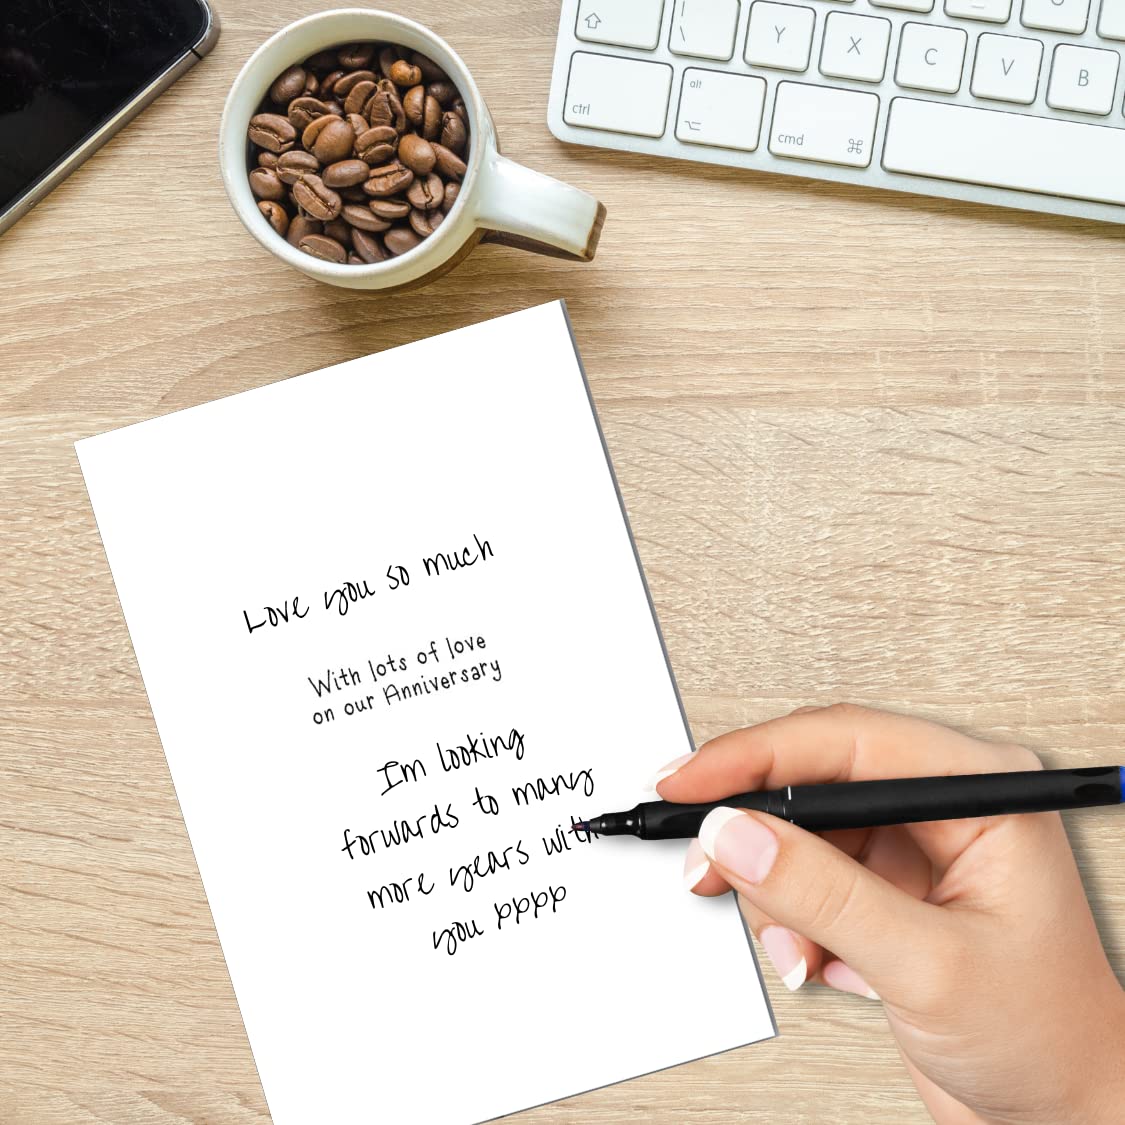 Y X C V B
alt
ctrl
cmd ⌘
Love you so much
With lots of love
on our Anniversary
I'm looking
forwards to many
more years with
you xxxx